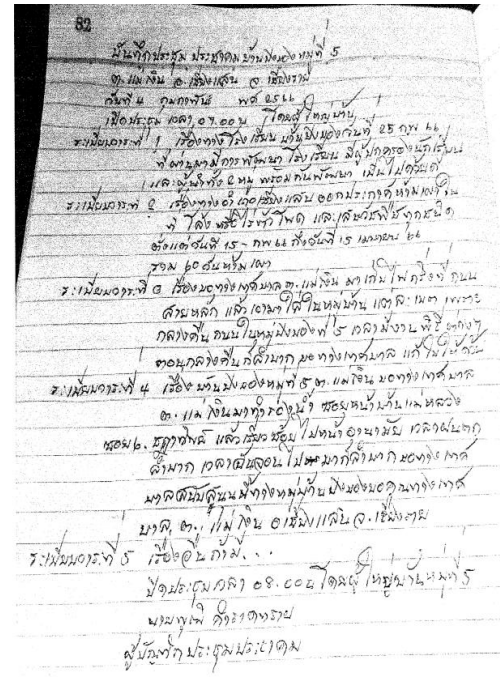 82
บันทึกประชุม ประชาคมบ้านปงของหมู่ที่ 5
ต. แม่เงิน อ. เชียงแสน จ. เชียงราย
วันที่ 4 กุมภาพันธ์ พศ 2566
เปิดประชุม เวลา 07.00น โดยผู้ใหญ่บ้าน
ระเบียบวาระที่ 1 เรื่องทางโรงเรียน บ้านปงของวันที่ 25 กพ 66
ที่ผ่านมามีการพัฒนา โรงเรียน มีผู้ปกครองนักเรียน
และผู้นำทั้ง 2 หมู่ พร้อมกันพัฒนา เป็นไปด้วยดี
ระเบียบวาระที่ 2 เรื่องทางอำเภอเชียงแสน ออกประกาศห้ามเผาใน
ที่โล่ง หรือไร่ข้าวโพด และเศษวัชพืชทุกชนิด
ตั้งแต่วันที่ 15 - กพ 66 ถึงวันที่ 15 เมษายน 66
รวม 60 วันห้ามเผา
ระเบียบวาระที่ 3 เรื่องขอทางเทศบาล ต. แม่เงิน มาเก็บไฟกริ่งที่ถนน
สายหลัก แล้วเอามาใส่ในหมู่บ้าน เพราะ
กลางคืน ถนนในหมู่ปงของที่ 5 เวลามีงานพิธีต่างๆ
ตอนกลางคืนก็ลำบาก ขอทางเทศบาล แก้ไขให้ด้วย
ระเบียบวาระที่ 4 เรื่องบ้านปงของหมู่ที่ 5 ต. แม่เงิน ขอทางเทศบาล
ต. แม่เงินมาทำร่องน้ำ ซอยหน้าบ้านแม่หลวง
ซอย 6. แล้วเลี้ยวซ้ายไปหน้าอนามัย เวลาฝนตก
ลำบาก เวลา ไปมาก็ลำบาก ขอทางเทศ
บาลสนับสนุน ทางหมู่บ้านปงของขอ ทางเทศ
บาล ต. แม่เงิน อ เชียงแสน จ. เชียงราย
ระเบียบวาระที่ 5 เรื่องอื่นถ้ามี...
ปิดประชุมเวลา 08.00น โดยผู้ใหญ่บ้านหมู่ที่ 5
ผู้บันทึก ประชุมประชาคม